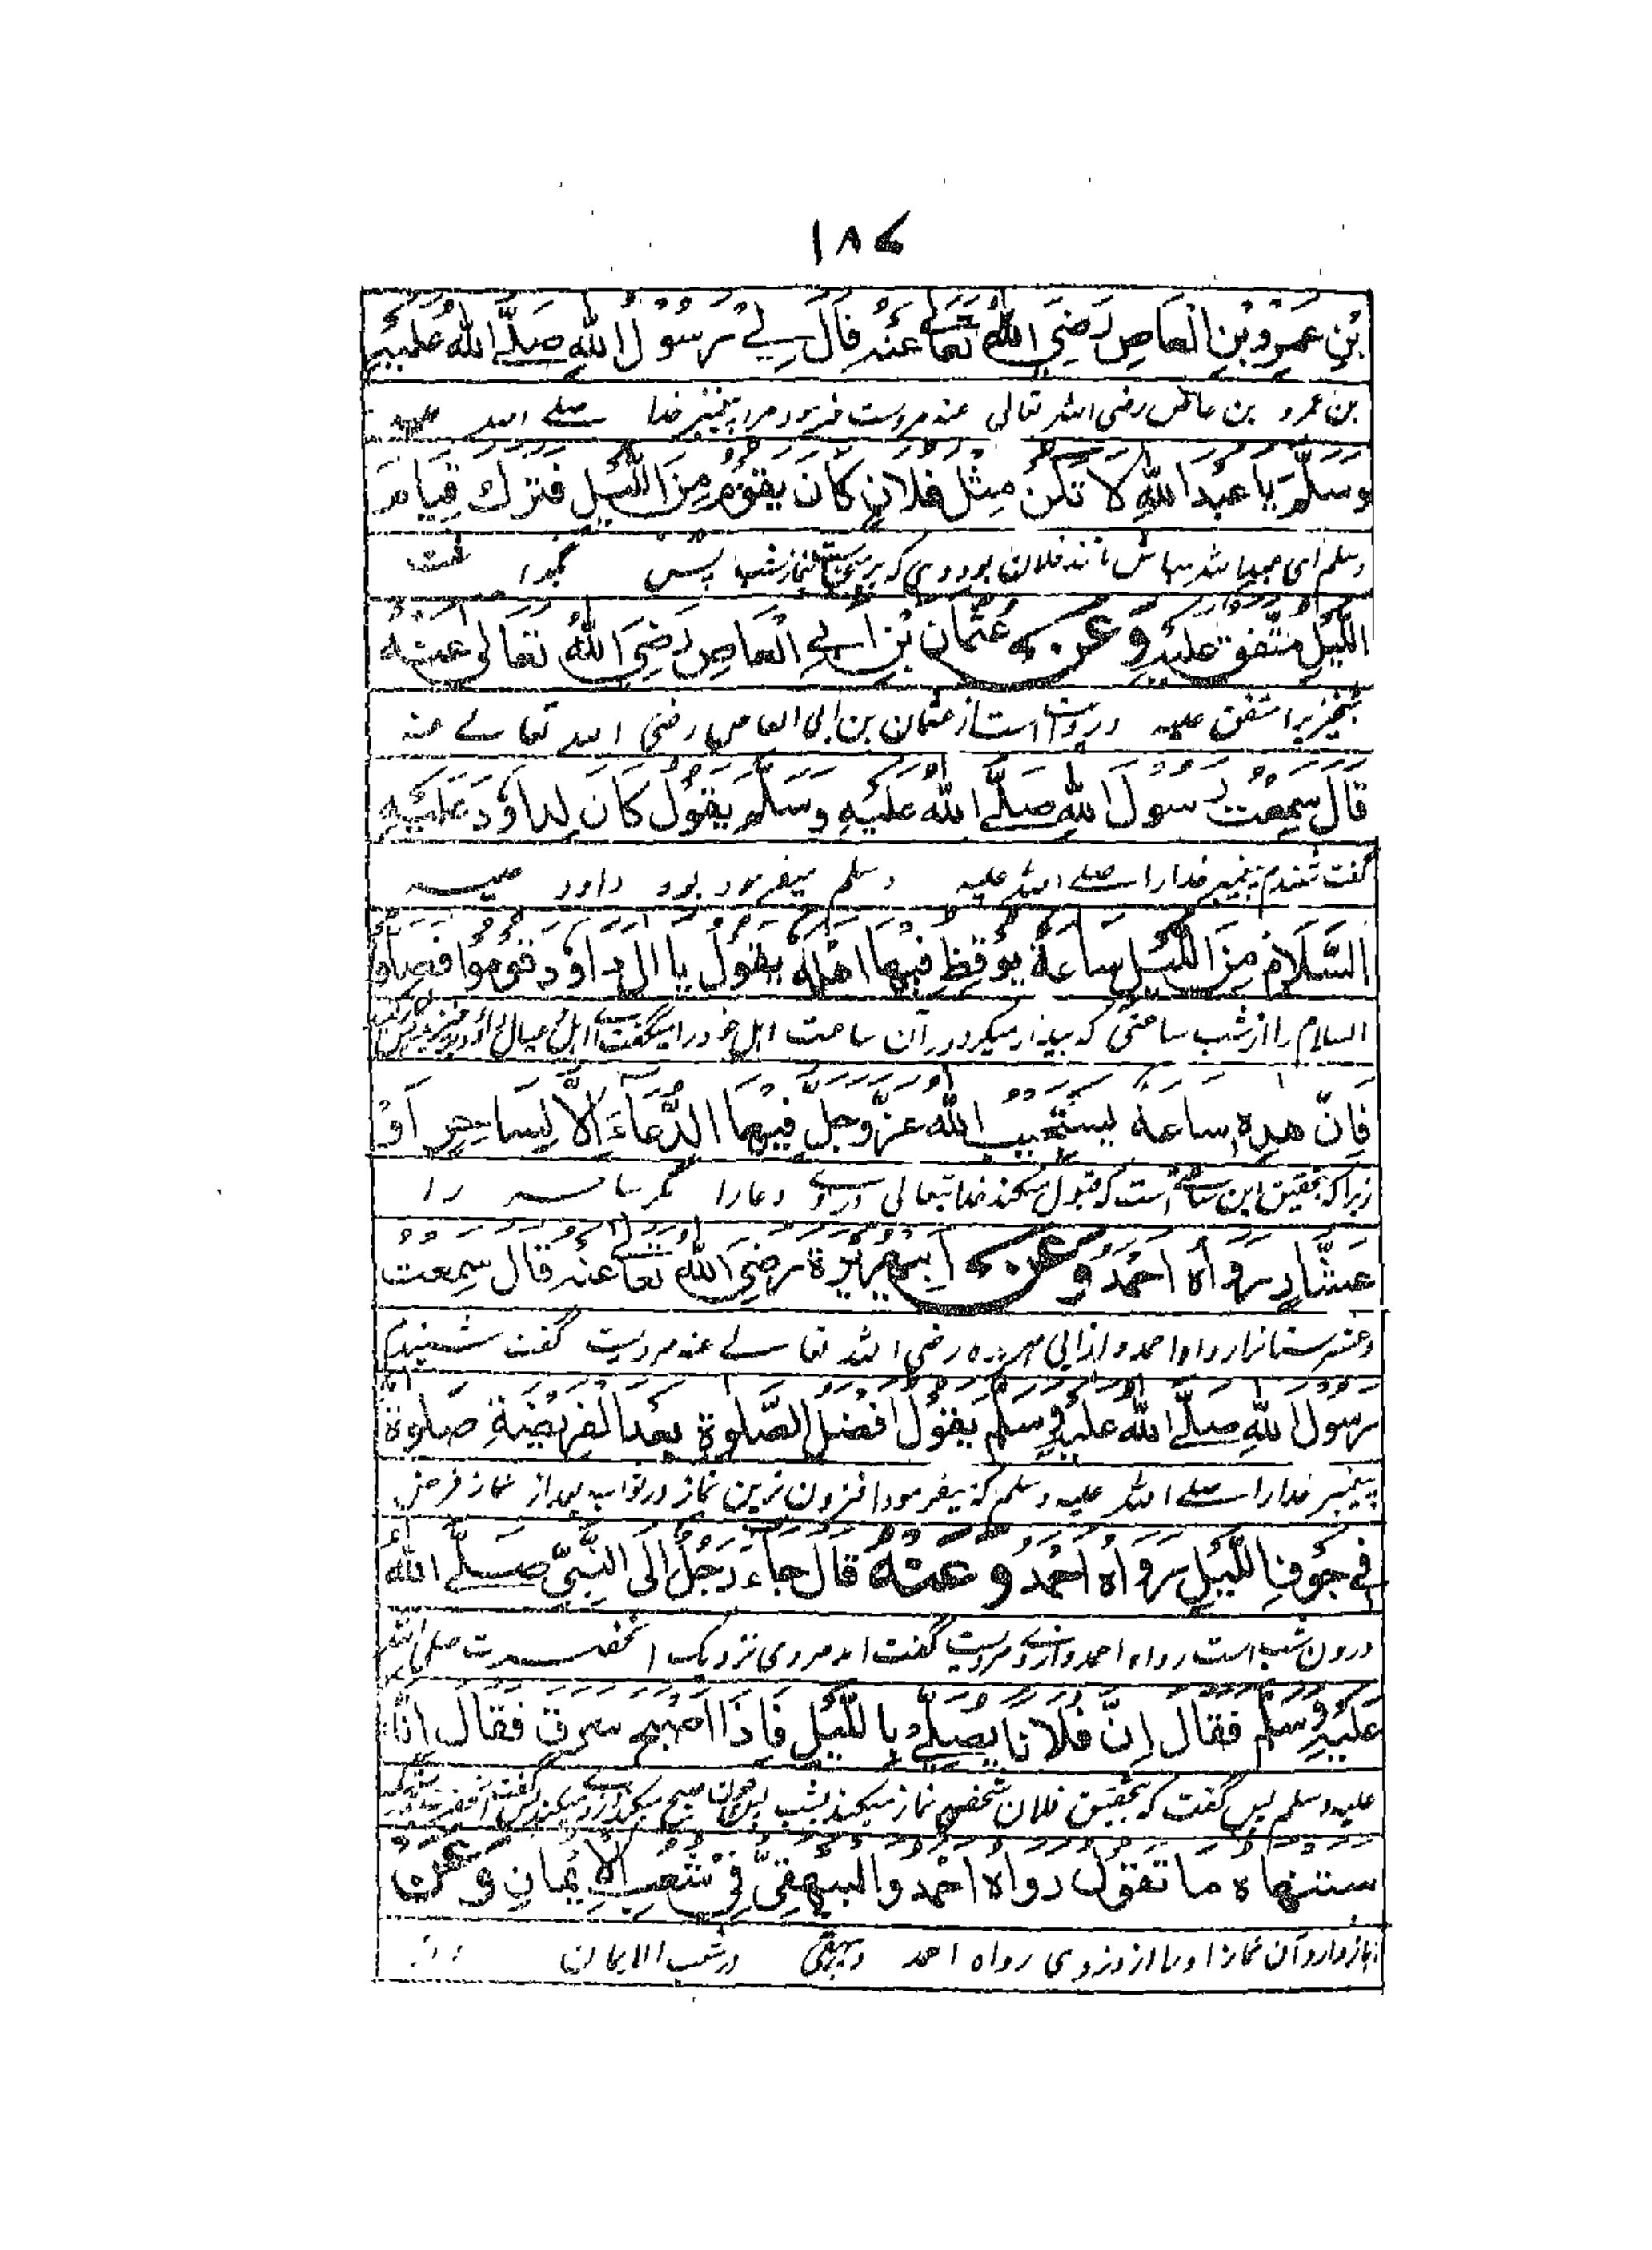 ۱۸۷
بْنِ عَمْرِو بْنِ الْعَاصِ رَضِيَ اللهُ تَعَالٰی عَنْهُ قَالَ لِيْ رَسُوْلُ اللهِ صَلَّى اللهُ عَلَيْهِ
بن عمرو بن عاص رضی الله تعالی عنه مرویست فرمود مرا پیغمبر خدا صلے الله علیه
وَسَلَّمَ يَا عَبْدَ اللهِ لَا تَكُنْ مِثْلَ فُلَانٍ كَانَ يَقُوْمُ مِنَ اللَّيْلِ فَتَرَكَ قِيَامَ
وسلم ای عبدالله مباش مانند فلان بود وی که برمیخاست نماز شب پس
اللَّيْلِ مُتَّفَقٌ عَلَيْهِ وَعَنْ عُثْمَانَ بْنِ أَبِي الْعَاصِ رَضِيَ اللهُ تَعَالٰى عَنْهُ
متفق علیه و روایت است از عثمان بن ابی العاص رضی الله تعالے عنه
قَالَ سَمِعْتُ رَسُوْلَ اللهِ صَلَّى اللهُ عَلَيْهِ وَسَلَّمَ يَقُوْلُ كَانَ لِدَاوُدَ عَلَيْهِ
گفت شنیدم پیغمبر خدا را صلے الله علیه وسلم میفرمود بود داود علیه
السَّلَامُ مِنَ اللَّيْلِ سَاعَةٌ يُوْقِظُ فِيْهَا أَهْلَهُ يَقُوْلُ يَا اٰلَ دَاوُدَ قُوْمُوْا فَصَلُّوْا
السلام را از شب ساعتی که بیدار میکرد در آن ساعت اهل خود را میگفت ای اهل و عیال داود
فَإِنَّ هٰذِهِ سَاعَةٌ يَسْتَجِيْبُ اللهُ عَزَّ وَجَلَّ فِيْهَا الدُّعَاءَ إِلَّا لِسَاحِرٍ أَوْ
زیرا که بتحقیق این ساعتی است که قبول میکند خدا تعالی دروے دعا را مگر ساحر را
عَشَّارٍ رَوَاهُ أَحْمَدُ وَعَنْ أَبِيْ هُرَيْرَةَ رَضِيَ اللهُ تَعَالٰى عَنْهُ قَالَ سَمِعْتُ
رواه احمد و از ابی هریره رضی الله تعالے عنه مرویست گفت شنیدم
رَسُوْلَ اللهِ صَلَّى اللهُ عَلَيْهِ وَسَلَّمَ يَقُوْلُ أَفْضَلُ الصَّلٰوةِ بَعْدَ الْفَرِيْضَةِ صَلٰوةٌ
پیغمبر خدا را صلے الله علیه وسلم که میفرمود افزون ترین نماز در ثواب بعد از نماز فرض
فِي جَوْفِ اللَّيْلِ رَوَاهُ أَحْمَدُ وَعَنْهُ قَالَ جَاءَ رَجُلٌ إِلَى النَّبِيِّ صَلَّى اللهُ
درون شب است رواه احمد و از وے مرویست گفت آمد مردی نزدیک آنحضرت صلی الله
عَلَيْهِ وَسَلَّمَ فَقَالَ إِنَّ فُلَانًا يُصَلِّيْ بِاللَّيْلِ فَإِذَا أَصْبَحَ سَرَقَ فَقَالَ إِنَّهُ
علیه وسلم پس گفت که بتحقیق فلان شخص نماز میکند بشب پس چون صبح میکند
سَتَنْهَاهُ مَا تَقُوْلُ رَوَاهُ أَحْمَدُ وَالْبَيْهَقِيُّ فِيْ شُعَبِ الْإِيْمَانِ وَعَنْ
باز دارد آن نماز او را از دزدی رواه احمد و بیهقی در شعب الایمان